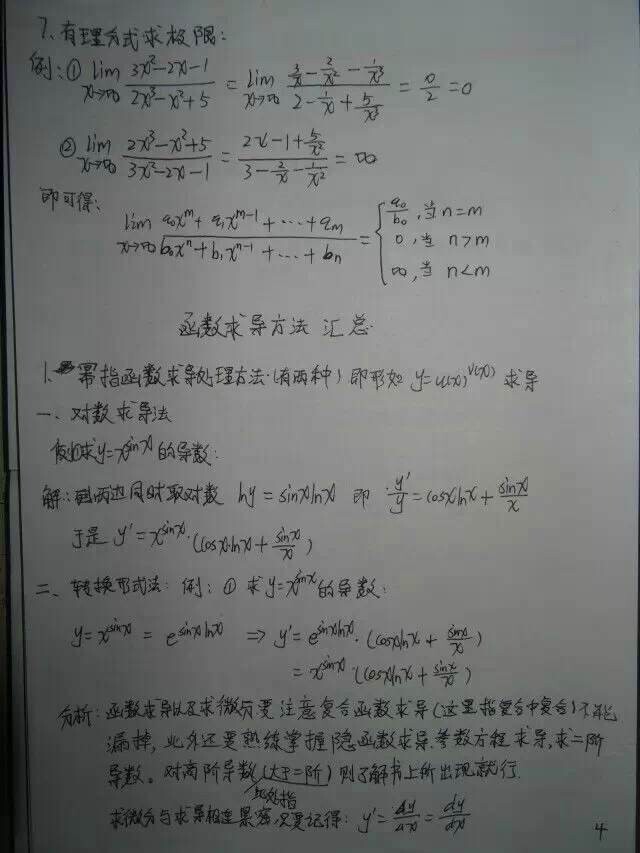 7、有理分式求极限:
例:① lim x→∞ (3x²-2x-1)/(2x³-x²+5) = lim x→∞ (3/x - 2/x² - 1/x³)/(2 - 1/x + 5/x³) = 0/2 = 0
② lim x→∞ (2x³-x²+5)/(3x²-2x-1) = (2x-1+5/x²)/(3 - 2/x - 1/x²) = ∞
即可得:
lim x→∞ (a₀xᵐ+a₁xᵐ⁻¹+…+aₘ)/(b₀xⁿ+b₁xⁿ⁻¹+…+bₙ) = { a₀/b₀, 当 n=m
0, 当 n>m
∞, 当 n<m
函数求导方法汇总.
1、幂指函数求导处理方法.(有两种) 即形如 y=u(x)^v(x) 求导
一、对数求导法
例如求y=x^sinx的导数:
解: 两边同时取对数 lny = sinxlnx 即 y'/y = cosxlnx + sinx/x
于是 y' = x^sinx·(cosx·lnx + sinx/x)
二、转换形式法: 例: ① 求 y=x^sinx的导数:
y=x^sinx = e^sinxlnx ⇒ y'=e^sinxlnx·(cosxlnx + sinx/x)
= x^sinx·(cosxlnx + sinx/x)
分析: 函数求导以及求微分要注意复合函数求导(这里指复合中复合)不能
漏掉, 此外还要熟练掌握隐函数求导.参数方程求导,求二阶
导数。对高阶导数(大于二阶)则了解书上所出现就行.
此处指
求微分与求导相连紧密,只要记得: y' = Δy/Δx = dy/dx
4